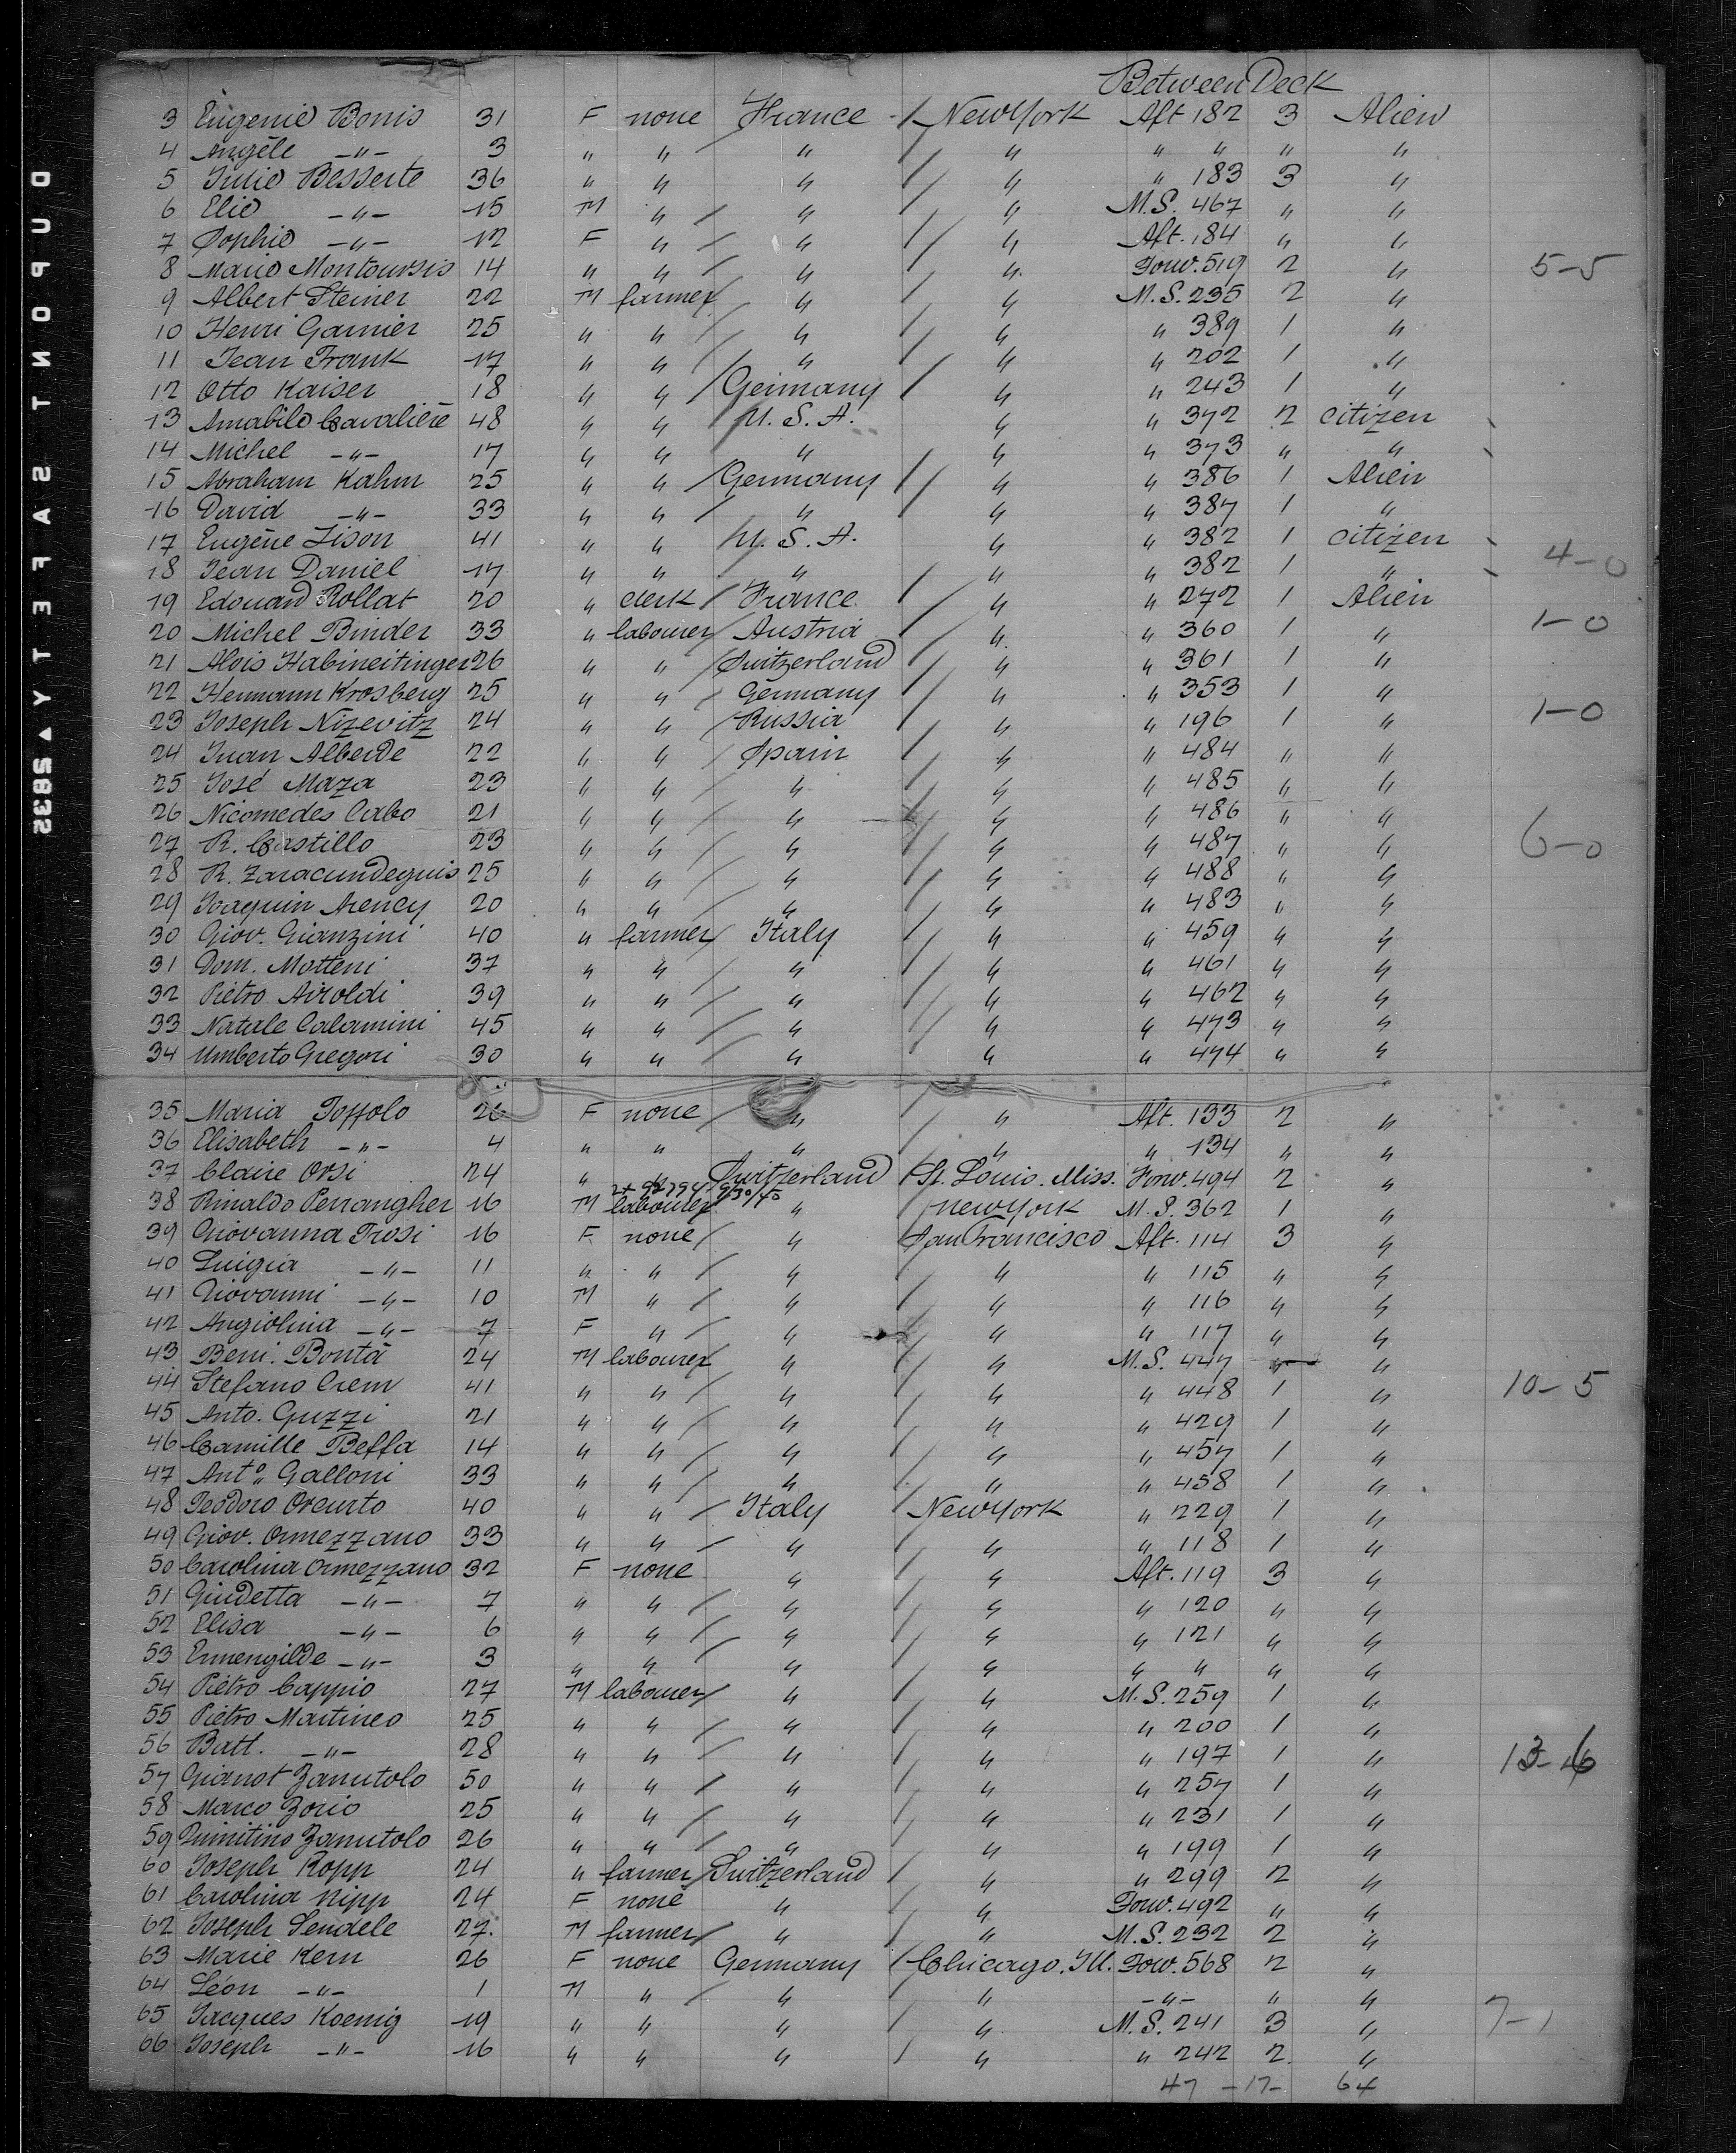 Between Deck
3 Eugenie Bonis 31 F none France New York Aft 182 3 Alien
4 Angèle -"- 3 " " " " " " " "
5 Julie Besserte 36 " " " " " 183 3 "
6 Elie -"- 15 M " " " M.S. 467 " "
7 Sophie -"- 12 F " " " Aft. 184 " "
8 Marie Montoursis 14 " " " " Forw. 519 2 " 5-5
9 Albert Steiner 22 M farmer " " M.S. 235 2 "
10 Henri Garnier 25 " " " " " 389 1 "
11 Jean Frank 17 " " " " " 202 1 "
12 Otto Kaiser 18 " " Germany " " 243 1 "
13 Amabile Cavalière 48 " " U.S.A. " " 372 2 citizen
14 Michel -"- 17 " " " " " 373 " "
15 Abraham Kahm 25 " " Germany " " 386 1 Alien
16 David -"- 33 " " " " " 387 1 "
17 Eugène Lison 41 " " U.S.A. " " 382 1 citizen 4-0
18 Jean Daniel 17 " " " " " 382 1 "
19 Edouard Rollat 20 " clerk France " " 272 1 Alien
20 Michel Binder 33 " labourer Austria " " 360 1 " 1-0
21 Alois Habineitinger 26 " " Switzerland " " 361 1 "
22 Hermann Krosberg 25 " " Germany " " 353 1 "
23 Joseph Nizevitz 24 " " Russia " " 196 1 " 1-0
24 Juan Alberde 22 " " Spain " " 484 " "
25 José Maza 23 " " " " " 485 " "
26 Nicomedes Cabo 21 " " " " " 486 " "
27 R. Castillo 23 " " " " " 487 " " 6-0
28 R. Zaracundeguis 25 " " " " " 488 " "
29 Joaquin Arency 20 " " " " " 483 " "
30 Giov. Gianzini 40 " farmer Italy " " 459 " "
31 Dom. Motteni 37 " " " " " 461 " "
32 Pietro Airoldi 39 " " " " " 462 " "
33 Natale Calamini 45 " " " " " 473 " "
34 Umberto Gregori 30 " " " " " 474 " "
35 Maria Toffolo 26 F none " " Aft. 133 2 "
36 Elisabeth -"- 4 " " " " " 134 " "
37 Claire Orsi 24 " " Switzerland St. Louis. Miss. Forw. 494 2 "
38 Rinaldo Perrangher 16 M labourer " New York M.S. 362 1 "
39 Giovanna Trosi 16 F none " San Francisco Aft. 114 3 "
40 Luigia -"- 11 " " " " " 115 " "
41 Giovanni -"- 10 M " " " " 116 " "
42 Angiolina -"- 7 F " " " " 117 " "
43 Beni. Bontà 24 M labourer " " M.S. 447 " "
44 Stefano Crem 41 " " " " " 448 1 " 10-5
45 Anto. Guzzi 21 " " " " " 429 1 "
46 Camille Beffa 14 " " " " " 457 1 "
47 Anto. Galloni 33 " " " " " 458 1 "
48 Teodoro Orcurto 40 " " Italy New York " 229 1 "
49 Giov. Ormezzano 33 " " " " " 118 1 "
50 Carolina Ormezzano 32 F none " " Aft. 119 3 "
51 Giudetta -"- 7 " " " " " 120 " "
52 Elisa -"- 6 " " " " " 121 " "
53 Ermengilde -"- 3 " " " " " " " "
54 Pietro Cappio 27 M labourer " " M.S. 259 1 "
55 Pietro Martineo 25 " " " " " 200 1 "
56 Batt. -"- 28 " " " " " 197 1 " 13-6
57 Gianot Zanutolo 50 " " " " " 257 1 "
58 Marco Zorio 25 " " " " " 231 1 "
59 Quintino Zanutolo 26 " " " " " 199 1 "
60 Joseph Ropp 24 " farmer Switzerland " " 299 2 "
61 Carolina Nipp 24 F none " " Forw. 492 " "
62 Joseph Sendele 27. M farmer " " M.S. 232 2 "
63 Marie Kern 26 F none Germany Chicago. Ill. Forw. 568 2 "
64 Léon -"- 1 M " " " -"- " "
65 Jacques Koenig 19 " " " " M.S. 241 3 " 7-1
66 Joseph -"- 16 " " " " " 242 2. "
47 -17- 64
DUPONT SAFETY ▲ S8ES